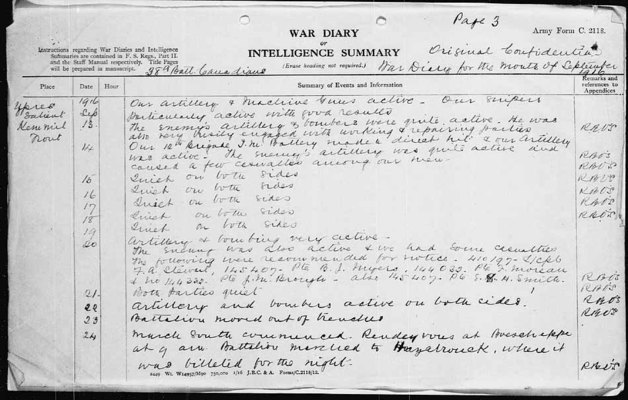 Page 3
Army Form C. 2118.
WAR DIARY
or
INTELLIGENCE SUMMARY
(Erase heading not required.)
Instructions regarding War Diaries and Intelligence
Summaries are contained in F. S. Regs., Part II.
and the Staff Manual respectively. Title Pages
will be prepared in manuscript.
38th Batt. Canadians
Original Confidential
War Diary for the Month of September
1916
Place
Date
Hour
Summary of Events and Information
Remarks and
references to
Appendices
Ypres
Salient
Kemmel
Front
1916
Sep
13
Our artillery & Machine Guns active. Our Snipers
Particularly active with good results
The enemy's artillery & bombers were quite active. He was
also very busily engaged with working & repairing parties
14 Our 12th Brigade T.M. Battery made a direct hit & our Artillery
was active. The enemy's artillery was quite active and
caused a few casualties among our men.
15 Quiet on both sides
16 Quiet on both sides
17 Quiet on both sides
18 Quiet on both sides
19 Quiet on both sides
20 Artillery & bombing very active.
The enemy was also active & we had some casualties
The following were recommended for notice. 410197 L/Cpl
F.A. Stewart, 145407 Pte B.J. Myers, 144033 Pte F. Moreau
& No 144333 Pte J.M. Brough. also 145407 Pte S. H. Smith.
21 Both parties quiet
22 Artillery and bombers active on both sides.
23 Battalion moved out of trenches
24 March South commenced. Rendezvous at Boescheppe
at 9 am Battalion marched to Hazebrouck, where it
was billeted for the night.
2449 Wt. W14957/M90 750,000 1/16 J.B.C. & A. Forms/C.2118/12.